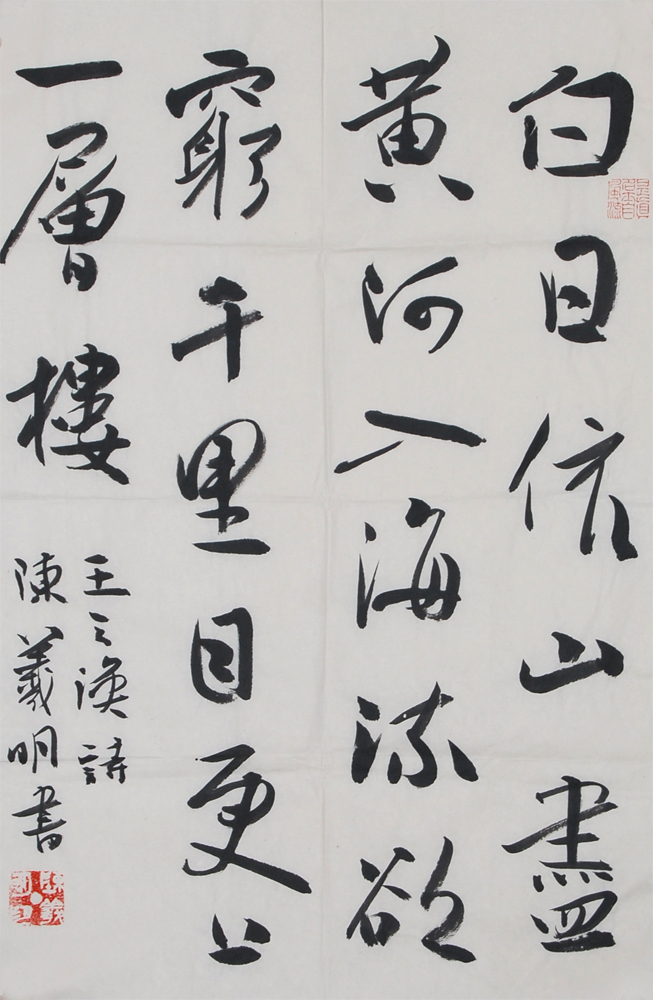 白日依山盡
黃河入海流欲
窮千里目更上
一層樓
王之渙詩
陳義明書